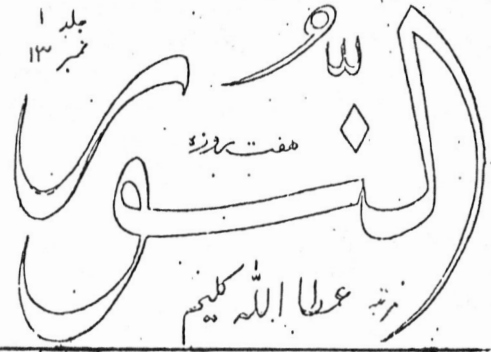 جلد ۱
نمبر ۱۳
النّور
ہفت روزہ
مرتبہ عطا اللہ کلیم